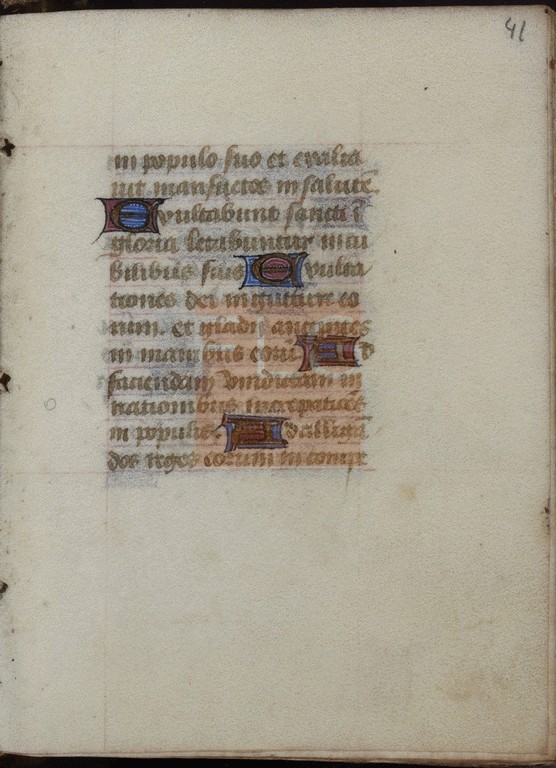 41
in populo suo et exalta
uit mansuetos in salutē
Exultabunt sancti ī
gloria letabuntur in cu
bilibus suis Exulta
tiones dei in gutture eo
rum. et gladii ancipites
in manibus eorū. Ad
faciendam vindictam in
nationibus increpatiōēs
in populis. Ad alligā
dos reges eorum in compe